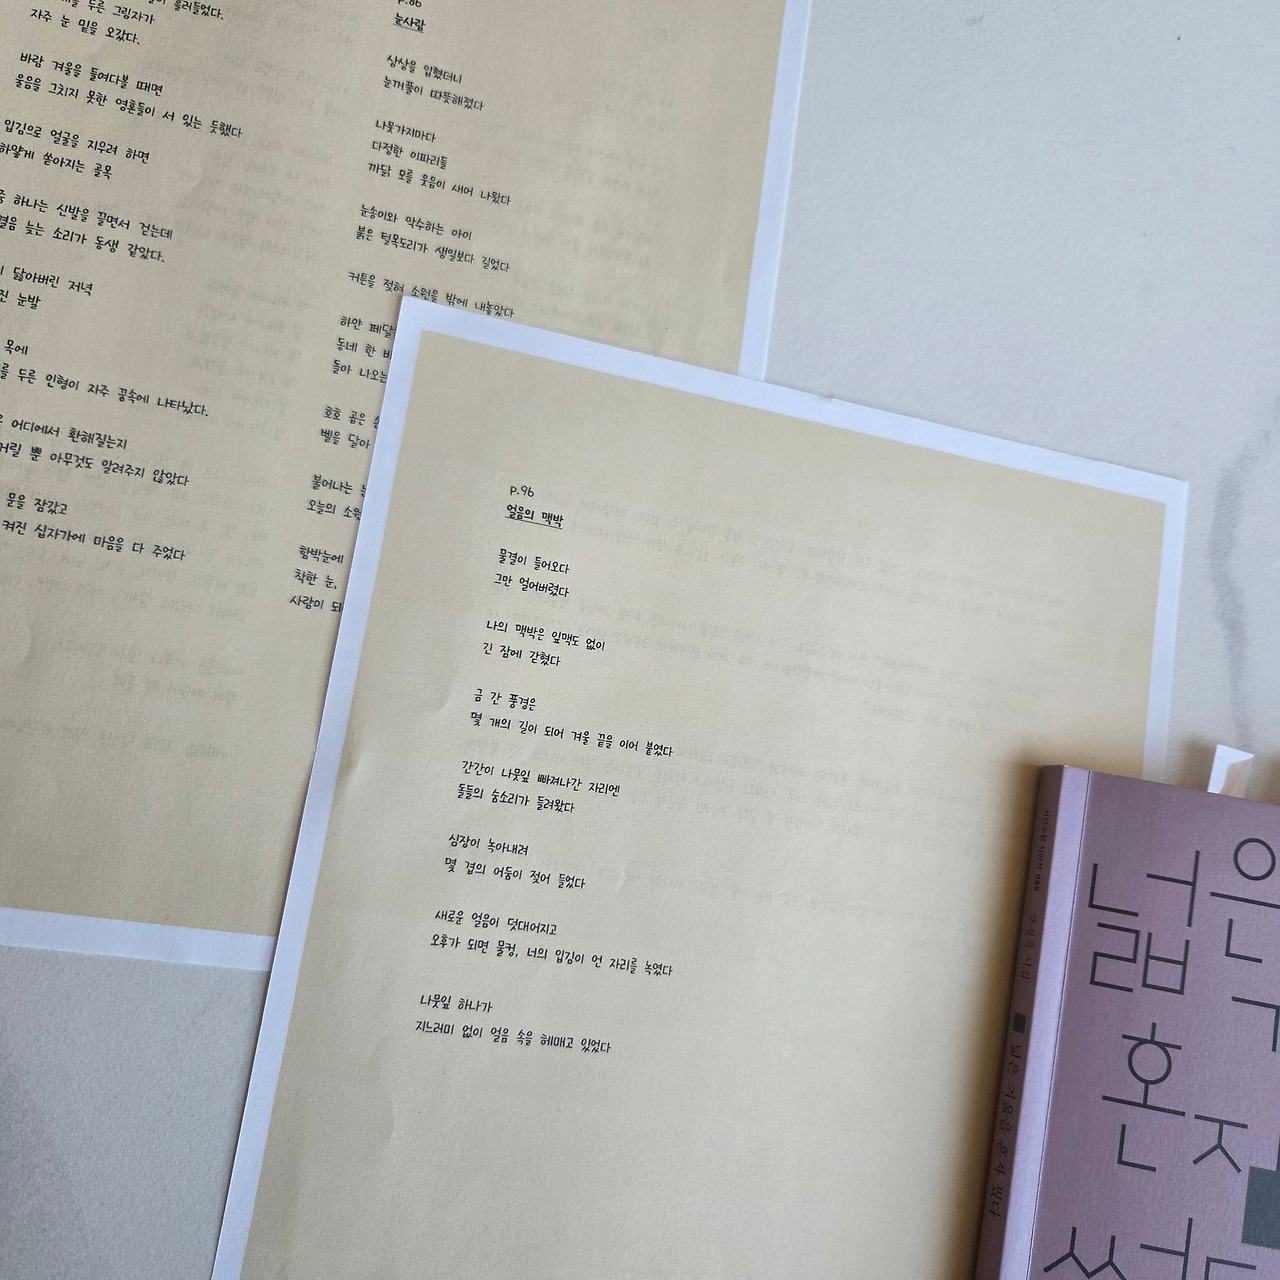 흘러들었다.
두른 그림자가
자주 눈 밑을 오갔다.
바람 겨울을 들여다볼 때면
울음을 그치지 못한 영혼들이 서 있는 듯했다
입김으로 얼굴을 지우려 하면
하얗게 쏟아지는 골목
하나는 신발을 끌면서 걷는데
늦는 소리가 동생 같았다.
닳아버린 저녁
눈발
목에
두른 인형이 자주 꿈속에 나타났다.
어디에서 환해질는지
뿐 아무것도 알려주지 않았다
문을 잠갔고
켜진 십자가에 마음을 다 주었다
p.86
눈사람
상상을 입혔더니
눈꺼풀이 따뜻해졌다
나뭇가지마다
다정한 이파리들
까닭 모를 웃음이 새어 나왔다
눈송이와 악수하는 아이
붉은 털목도리가 생일보다 길었다
커튼을 젖혀 소원을 밖에 내놓았다
하얀 페달
동네 한 바
돌아 나오는
호호 곱은
벨을 달아
불어나는
오늘의 소원
함박눈에
착한 눈,
사람이 되
p.96
얼음의 맥박
물결이 들어오다
그만 얼어버렸다
나의 맥박은 잎맥도 없이
긴 잠에 갇혔다
금 간 풍경은
몇 개의 길이 되어 겨울 끝을 이어 붙였다
간간이 나뭇잎 빠져나간 자리엔
돌들의 숨소리가 들려왔다
심장이 녹아내려
몇 겹의 어둠이 젖어 들었다
새로운 얼음이 덧대어지고
오후가 되면 물컹, 너의 입김이 언 자리를 녹였다
나뭇잎 하나가
지느러미 없이 얼음 속을 헤매고 있었다
넓은 겨울을 혼자 썼다
넓은
혼자